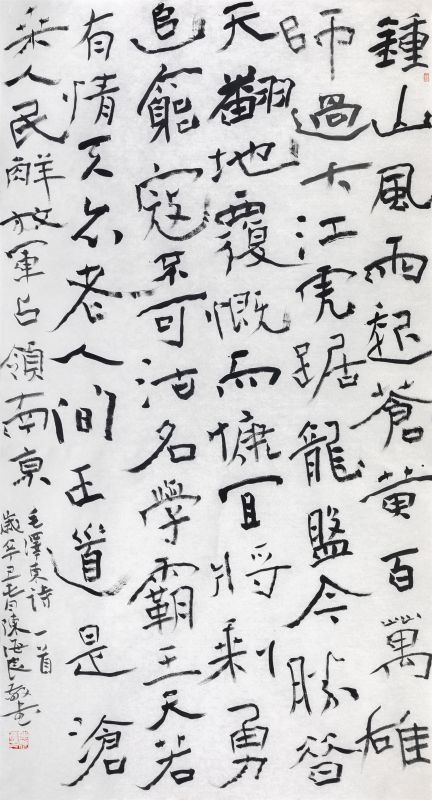 鍾山風雨起蒼黄百萬雄
師過大江虎踞龍盤今勝昔
天翻地覆慨而慷宜將剩勇
追窮寇不可沽名學霸王天若
有情天亦老人間正道是滄
桒人民解放軍占領南京
毛澤東詩一首
歲辛丑七月陳海良敬書